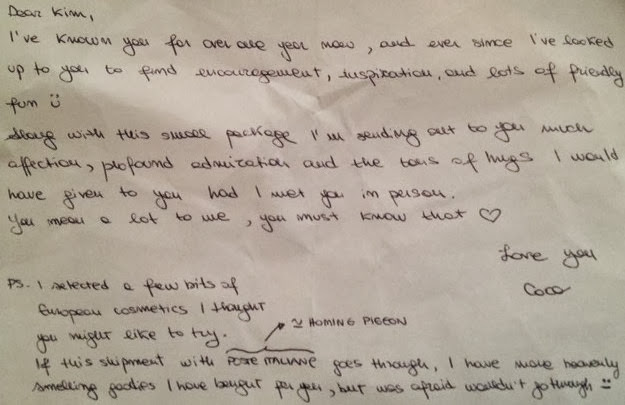 Dear Kim,
I've known you for over one year now, and ever since I've looked
up to you to find encouragement, inspiration, and lots of friendly
fun ü
Along with this small package I'm sending out to you much
affection, profound admiration and the tons of hugs I would
have given to you had I met you in person.
You mean a lot to me, you must know that ♡
Love you
Coco
PS. I selected a few bits of
European cosmetics I thought
you might like to try.
≃ HOMING PIGEON
If this shipment with POSTE ITALIANE goes through, I have more heavenly
smelling goodies I have bought for you, but was afraid wouldn't go through ü